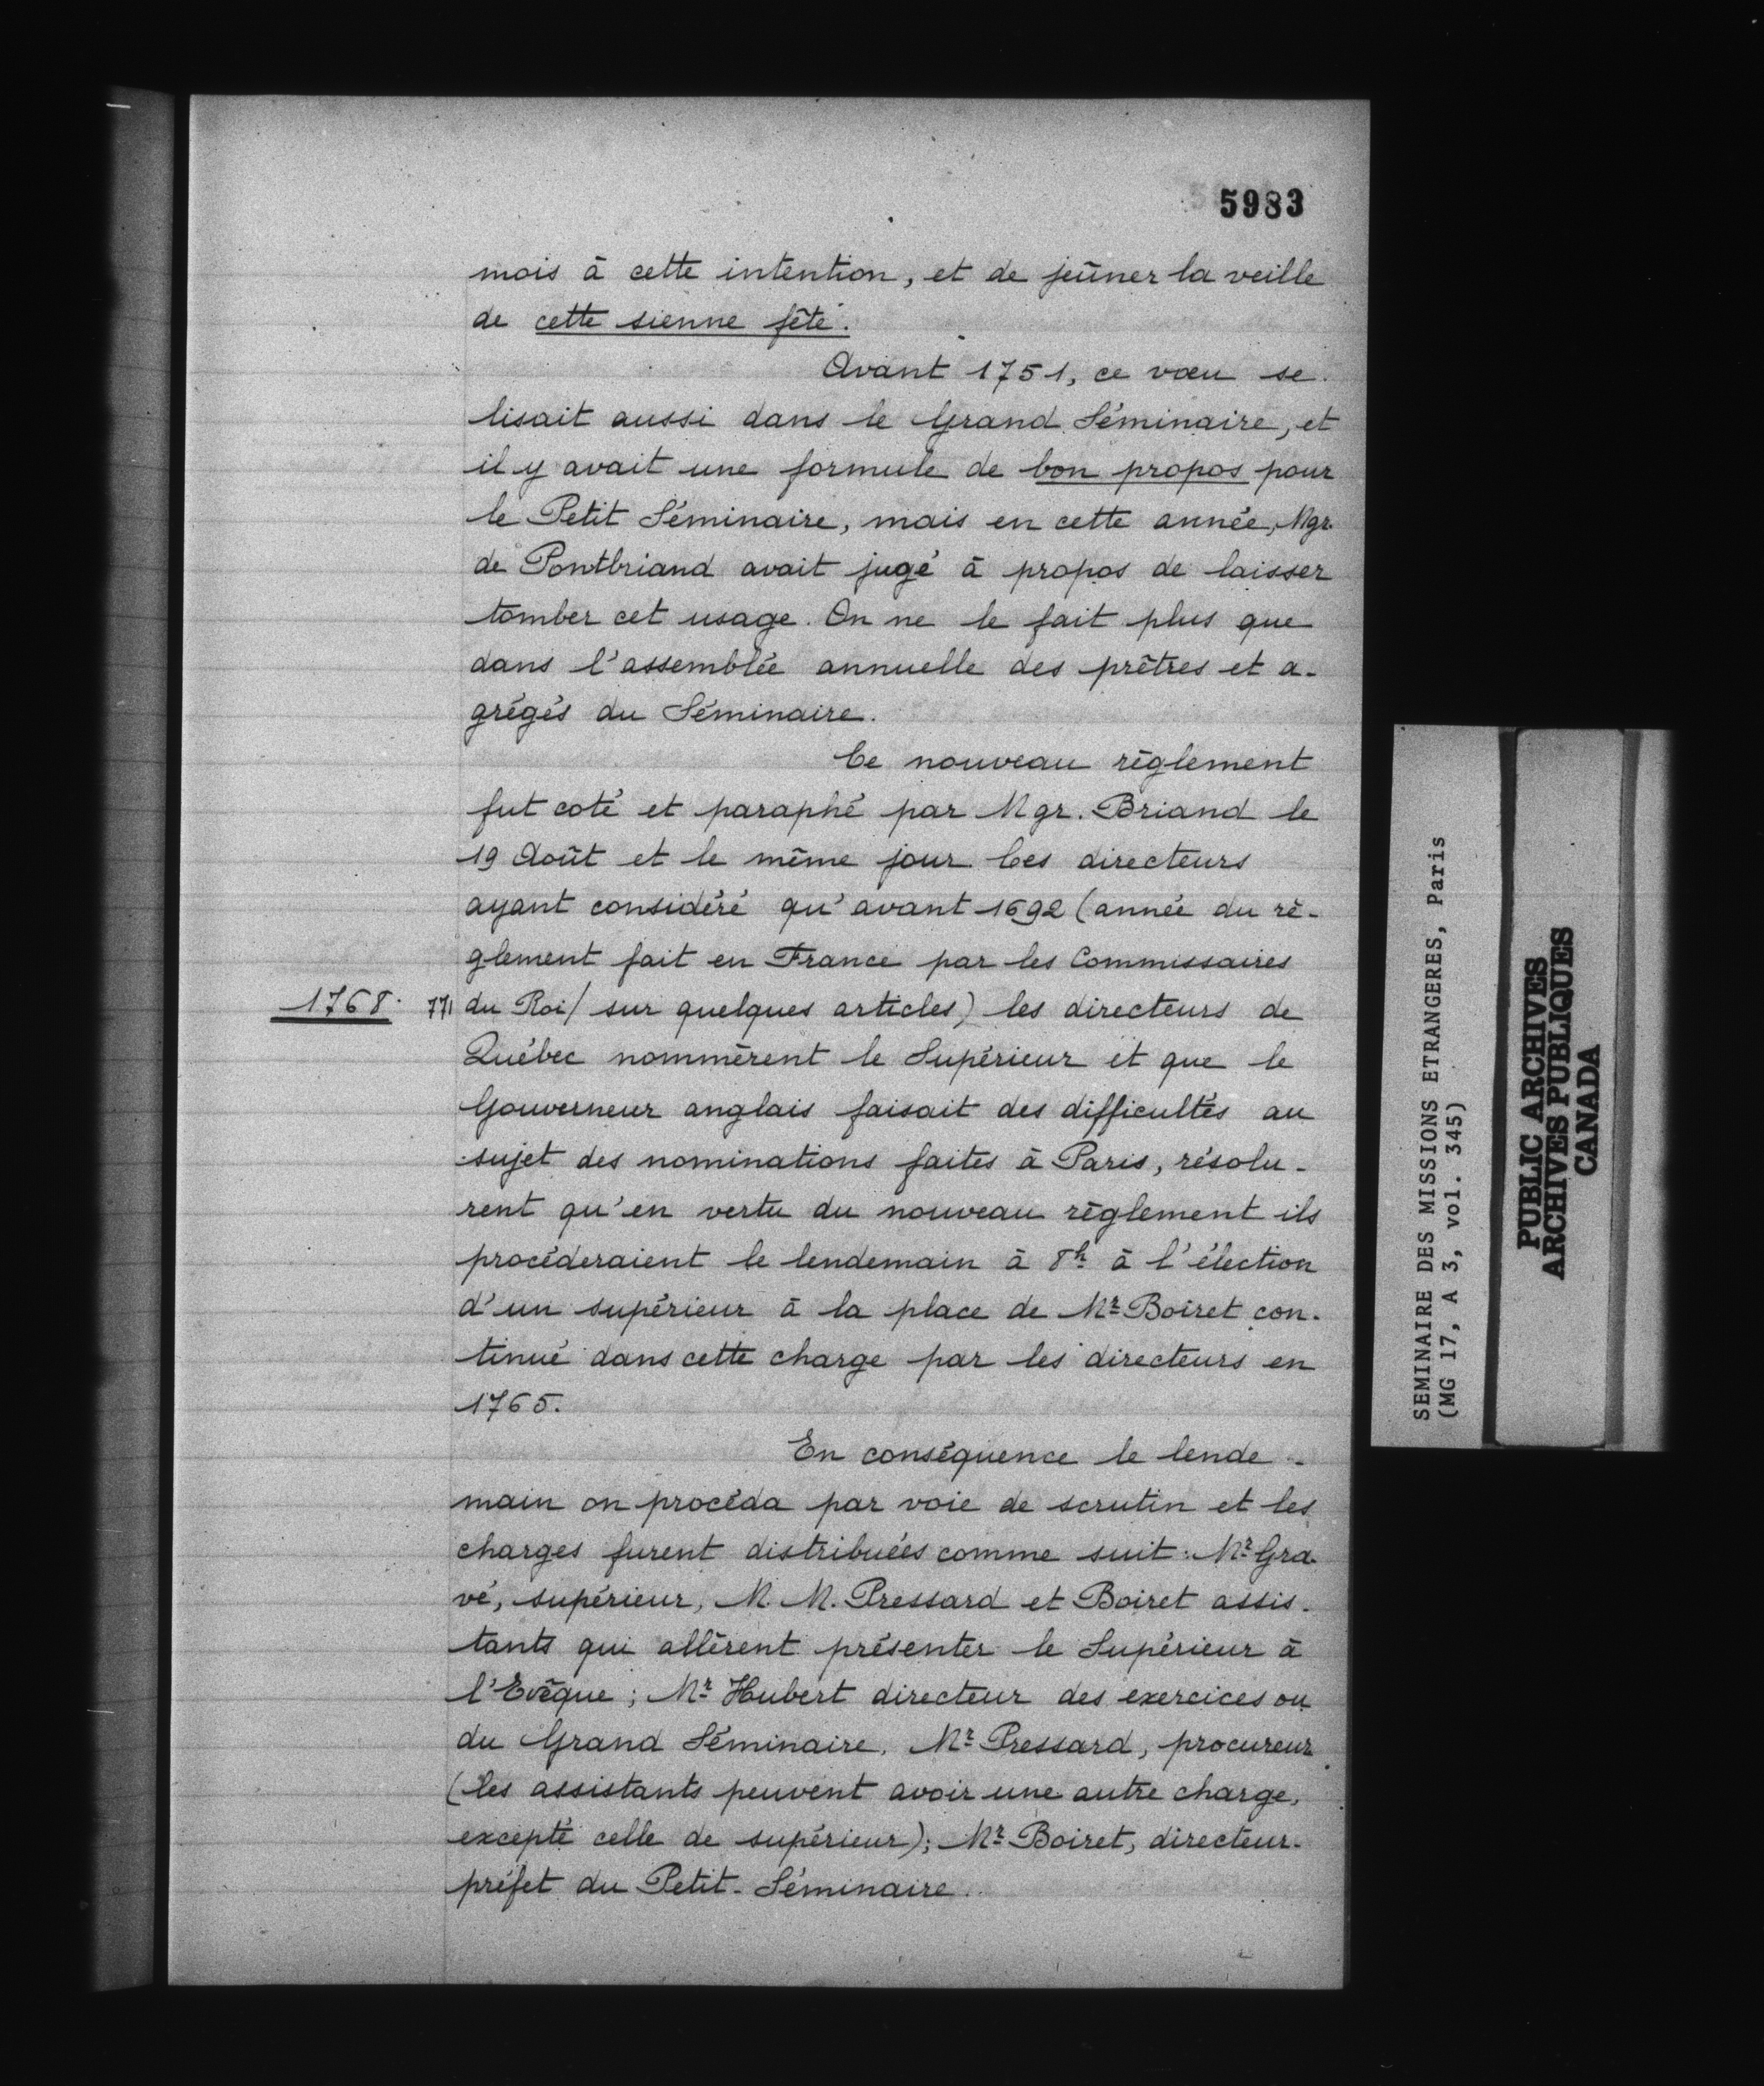 5983
mois à cette intention, et de jeûner la veille
de cette sienne fête.
Avant 1751, ce vœu se
lisait aussi dans le Grand Séminaire, et
il y avait une formule de bon propos pour
le Petit Séminaire, mais en cette année, Mgr.
de Pontbriand avait jugé à propos de laisser
tomber cet usage. On ne le fait plus que
dans l'assemblée annuelle des prêtres et a-
grégés du Séminaire.
Ce nouveau règlement
fut coté et paraphé par Mgr. Briand le
19 Août et le même jour les directeurs
ayant considéré qu'avant 1692 (année du rè-
glement fait en France par les Commissaires
1768. 771 du Roi/ sur quelques articles) les directeurs de
Québec nommèrent le Supérieur et que le
Gouverneur anglais faisait des difficultés au
sujet des nominations faites à Paris, résolu-
rent qu'en vertu du nouveau règlement ils
procéderaient le lendemain à 8h à l'élection
d'un supérieur à la place de Mr Boiret con-
tinué dans cette charge par les directeurs en
1765.
En conséquence le lende-
main on procéda par voie de scrutin et les
charges furent distribuées comme suit: Mr Gra-
vé, supérieur, M. M. Pressard et Boiret assis-
tants qui allèrent présenter le Supérieur à
l'Evêque; Mr Hubert directeur des exercices ou
du Grand Séminaire. Mr Pressard, procureur
(les assistants peuvent avoir une autre charge,
excepté celle de supérieur); Mr Boiret, directeur-
préfet du Petit-Séminaire.
SEMINAIRE DES MISSIONS ETRANGERES, Paris
(MG 17, A 3, vol. 345)
PUBLIC ARCHIVES
ARCHIVES PUBLIQUES
CANADA